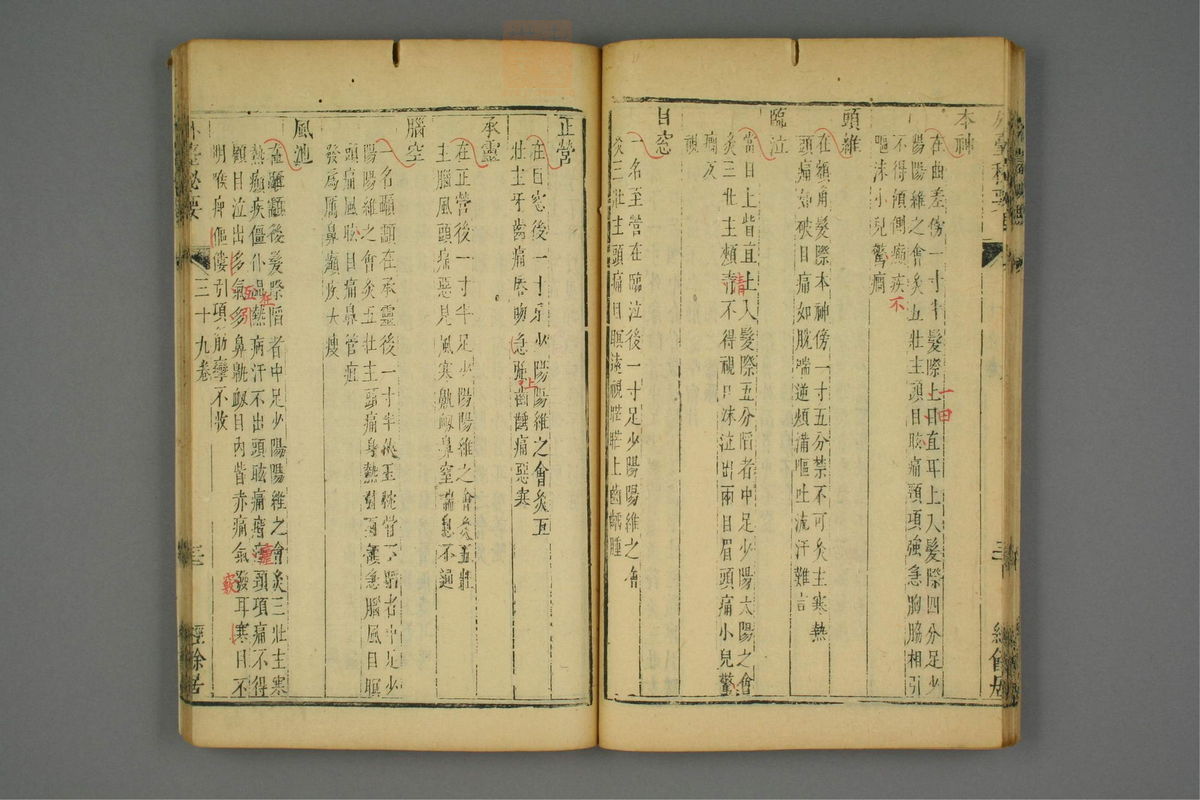 本神
在曲差傍一寸半髮際上曰直耳上入髮際四分足少
陽陽維之會灸五壯主頭目眩痛頸項強急胸脇相引
不得傾側癲疾
嘔沫小兒驚癇
頭維
在額角髮際本神傍一寸五分禁不可灸主寒熱
頭痛如破目痛如脫喘逆煩滿嘔吐流汗難言
臨泣
當目上眥直上入髮際五分陷者中足少陽太陽之會
灸三壯主頰清不得視口沫泣出兩目眉頭痛小兒驚
癇反
視
目窓
一名至營在臨泣後一寸足少陽陽維之會
灸三壯主頭痛目瞑遠視䀮䀮上齒齲腫
正營
在目窓後一寸足少陽陽維之會灸五
壯主牙齒痛唇吻急強齒齲痛惡寒
承靈
在正營後一寸半足少陽陽維之會灸五壯
主腦風頭痛惡見風寒鼽衂鼻窒喘息不通
腦空
一名顳顬在承靈後一寸半俠玉枕骨下陷者中足少
陽陽維之會灸五壯主頭痛身熱引兩頷急腦風目瞑
頭痛風眩目痛鼻管疽
發爲厲鼻癲疾大瘦
風池
在顳顬後髮際陷者中足少陽陽維之會灸三壯主寒
熱癲疾僵仆温熱病汗不出頭眩痛痎瘧頸項痛不得
顧目泣出多氣多鼻鼽衂目内眥赤痛氣發耳寒目不
明喉痺傴僂引項筋攣不收
外臺秘要
三十九卷
三
經餘居
一曰
不
清
上
在
互引
瘧
竅